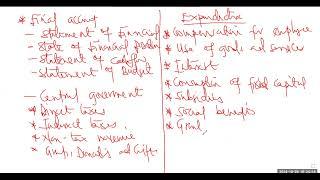 * Final account
- Statement of Financial
- State of Financial Position
- Statement of Cashflow
- Statement of Budget
- Central government
* Direct taxes
* Indirect taxes
* Non-tax revenue
* Grants, Donations and Gift
Expenditure
* Compensation for employee
* Use of goods and services
* Interest
* Consumption of fixed Capital
* Subsidies
* Social benefits
* Grant,